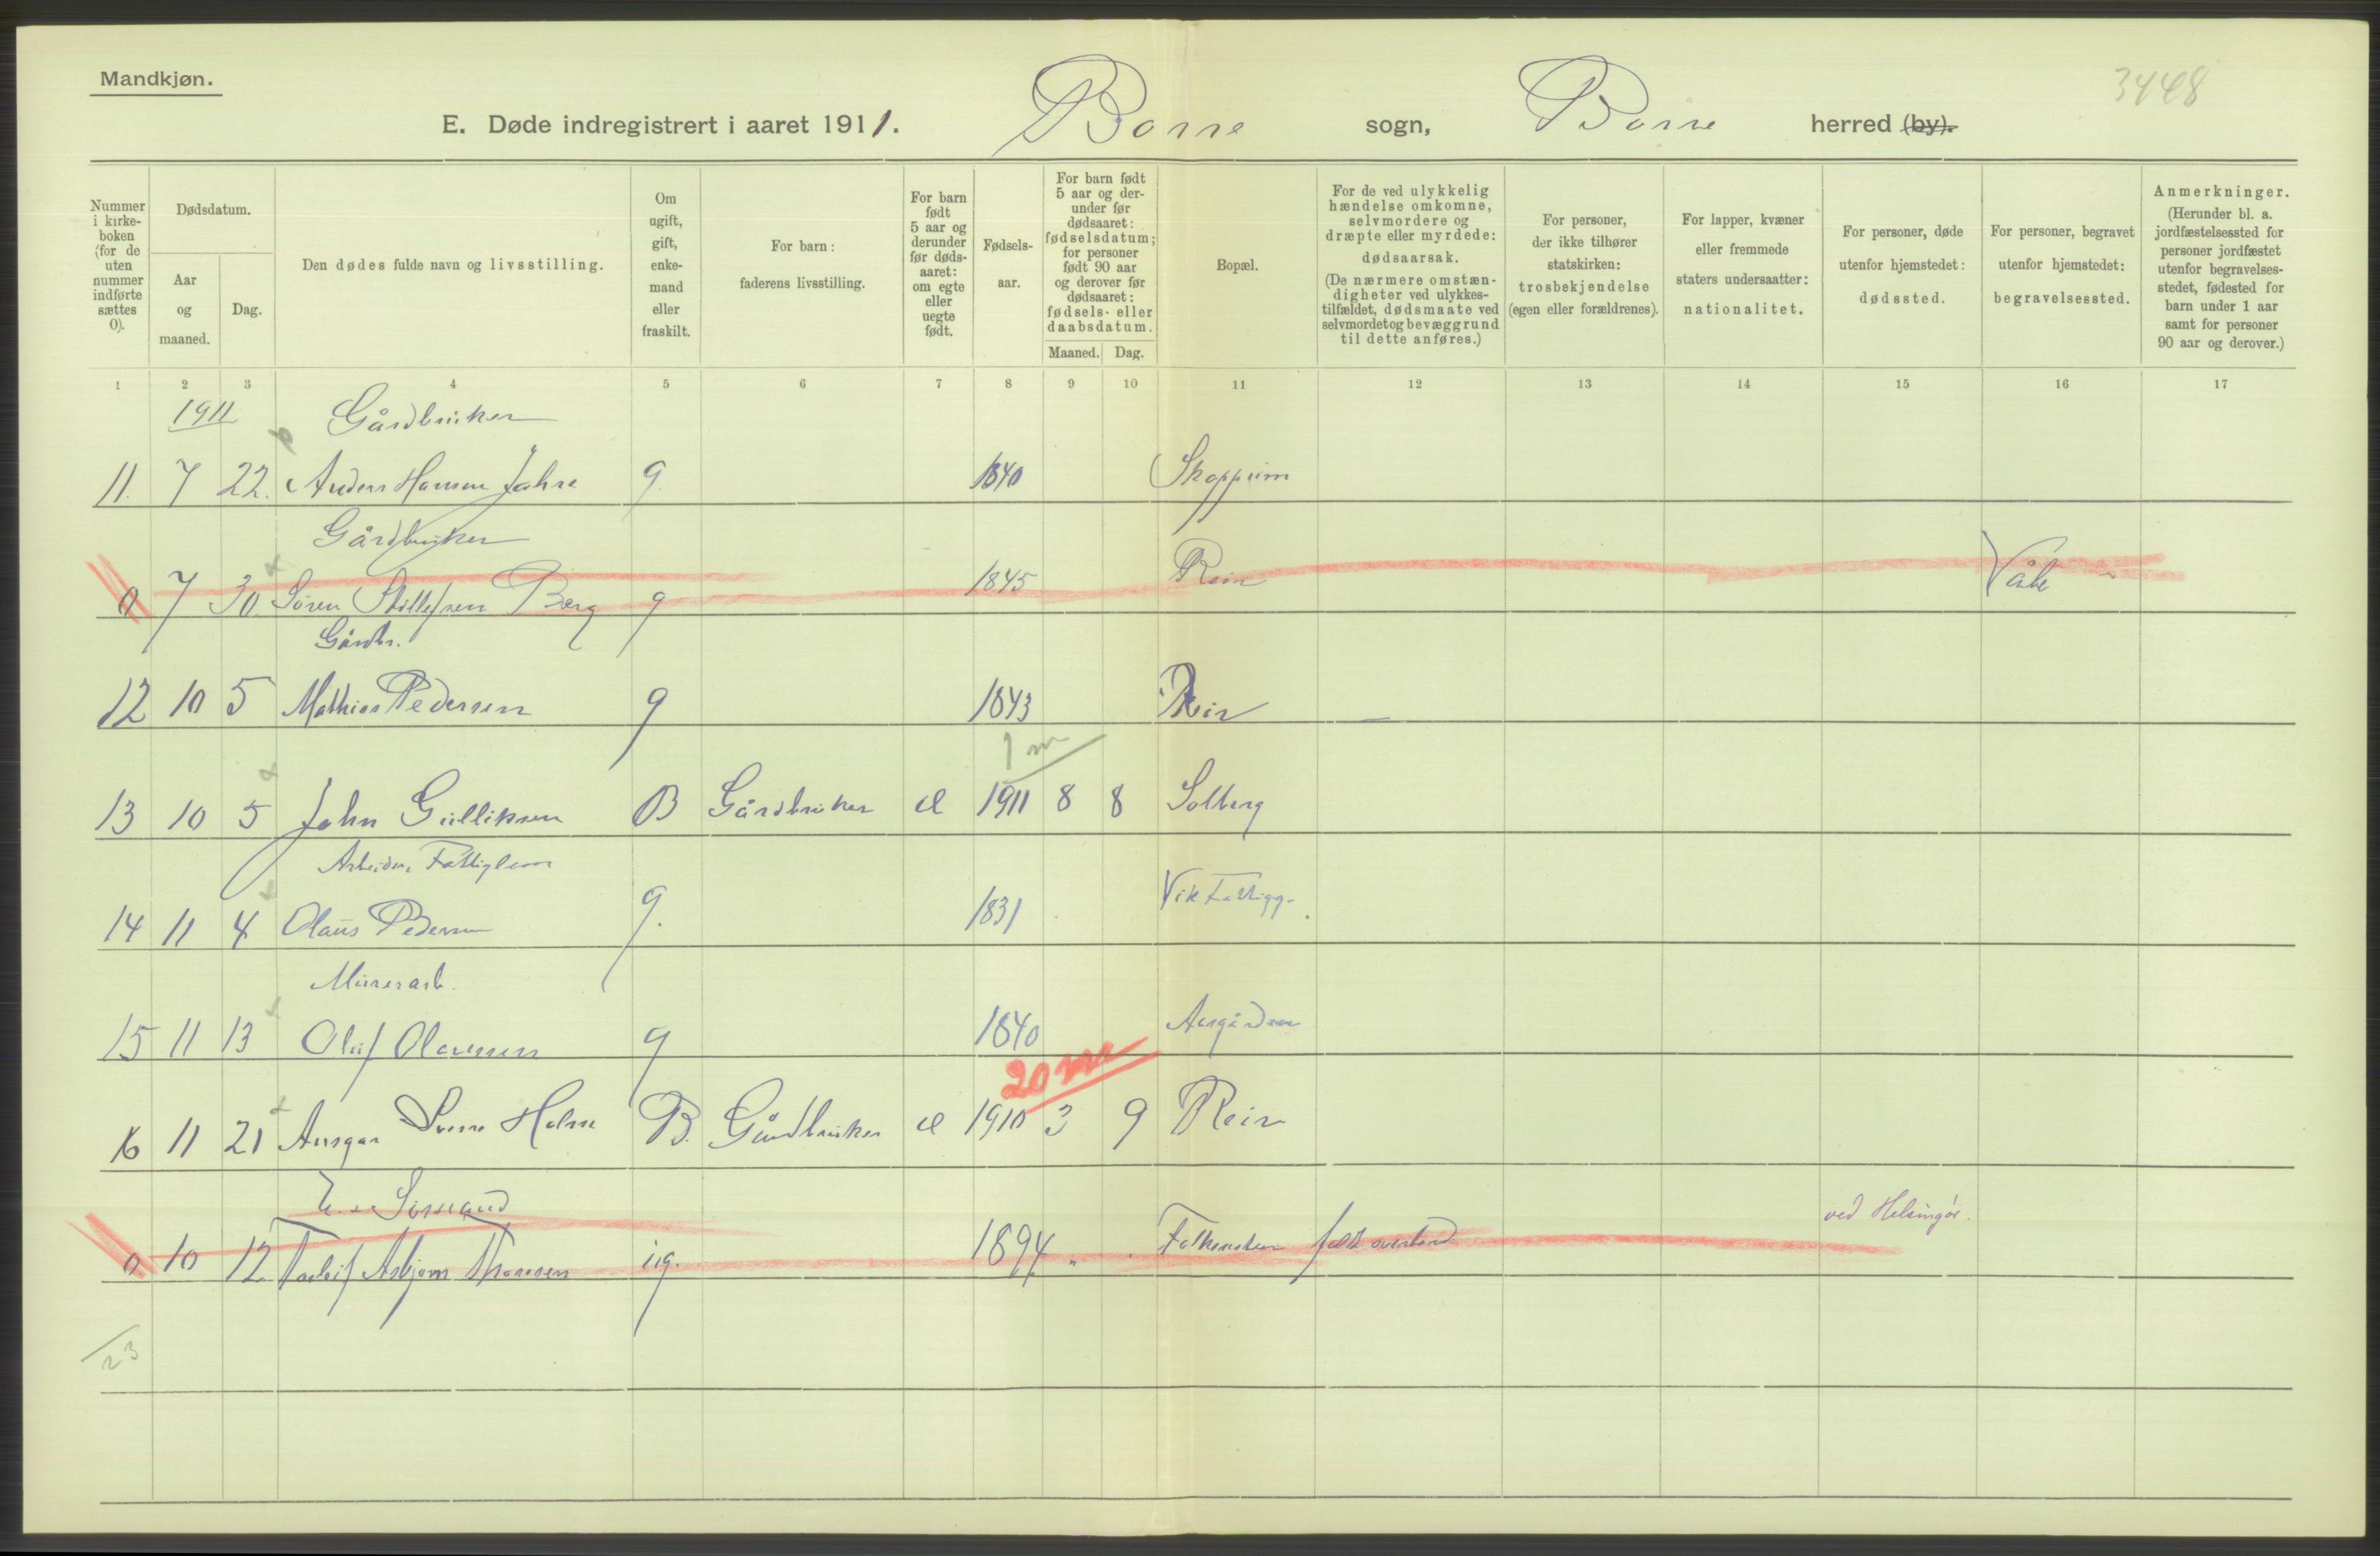 Mandkjøn.
3448
E. Døde indregistrert i aaret 1911. Borre sogn, Borre herred (by).
Nummer i kirke-boken (for de uten nummer indførte sættes 0).
Dødsdatum.
Aar og maaned.
Dag.
Den dødes fulde navn og livsstilling.
Om ugift, gift, enke-mand eller fraskilt.
For barn: faderens livsstilling.
For barn født 5 aar og derunder før døds-aaret: om egte eller uegte født.
Fødsels-aar.
For barn født 5 aar og der-under før dødsaaret: fødselsdatum; for personer født 90 aar og derover før dødsaaret: fødsels- eller daabsdatum.
Maaned.
Dag.
Bopæl.
For de ved ulykkelig hændelse omkomne, selvmordere og dræpte eller myrdede: dødsaarsak. (De nærmere omstæn-digheter ved ulykkes-tilfældet, dødsmaate ved selvmordet og bevæggrund til dette anføres.)
For personer, der ikke tilhører statskirken: trosbekjendelse (egen eller forældrenes).
For lapper, kvæner eller fremmede staters undersaatter: nationalitet.
For personer, døde utenfor hjemstedet: dødssted.
For personer, begravet utenfor hjemstedet: begravelsessted.
Anmerkninger. (Herunder bl. a. jordfæstelsessted for personer jordfæstet utenfor begravelses-stedet, fødested for barn under 1 aar samt for personer 90 aar og derover.)
1 2 3 4 5 6 7 8 9 10 11 12 13 14 15 16 17
1911 Gårdbruker
11. 7 22. Anders Hansen Jahre g. 1840 Skoppum
Gårdbruker
0 7 30. Søren Berg g 1845 Reir Våle
Gårdbr.
12 10 5 Mathias Pedersen g 1843 Reir
1 m
13 10 5 John Gulliksen B Gårdbruker e 1911 8 8 Solberg
Arbeider, Fattiglem
14 11 4 Olaus Pedersen g. 1831 Vik Fattigg.
Murerarb.
15 11 13 Oluf Olavessen g 1840 Aasgården
20 m
16 11 21 Ansgar Sverre Holm B. Gårdbruker e 1910 3 9 Reir
Sømand ved Helsingør.
0 10 12 Asbjørn Thoresen ug. 1894 " Falkensten faldt overbord
23